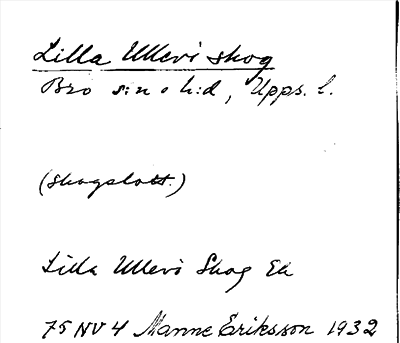 Lilla Ullevi skog
Bro s:n o h:d, Upps. l.
(Skogslott.)
Lilla Ullevi Skog Ek
75 NV 4 Manne Eriksson 1932